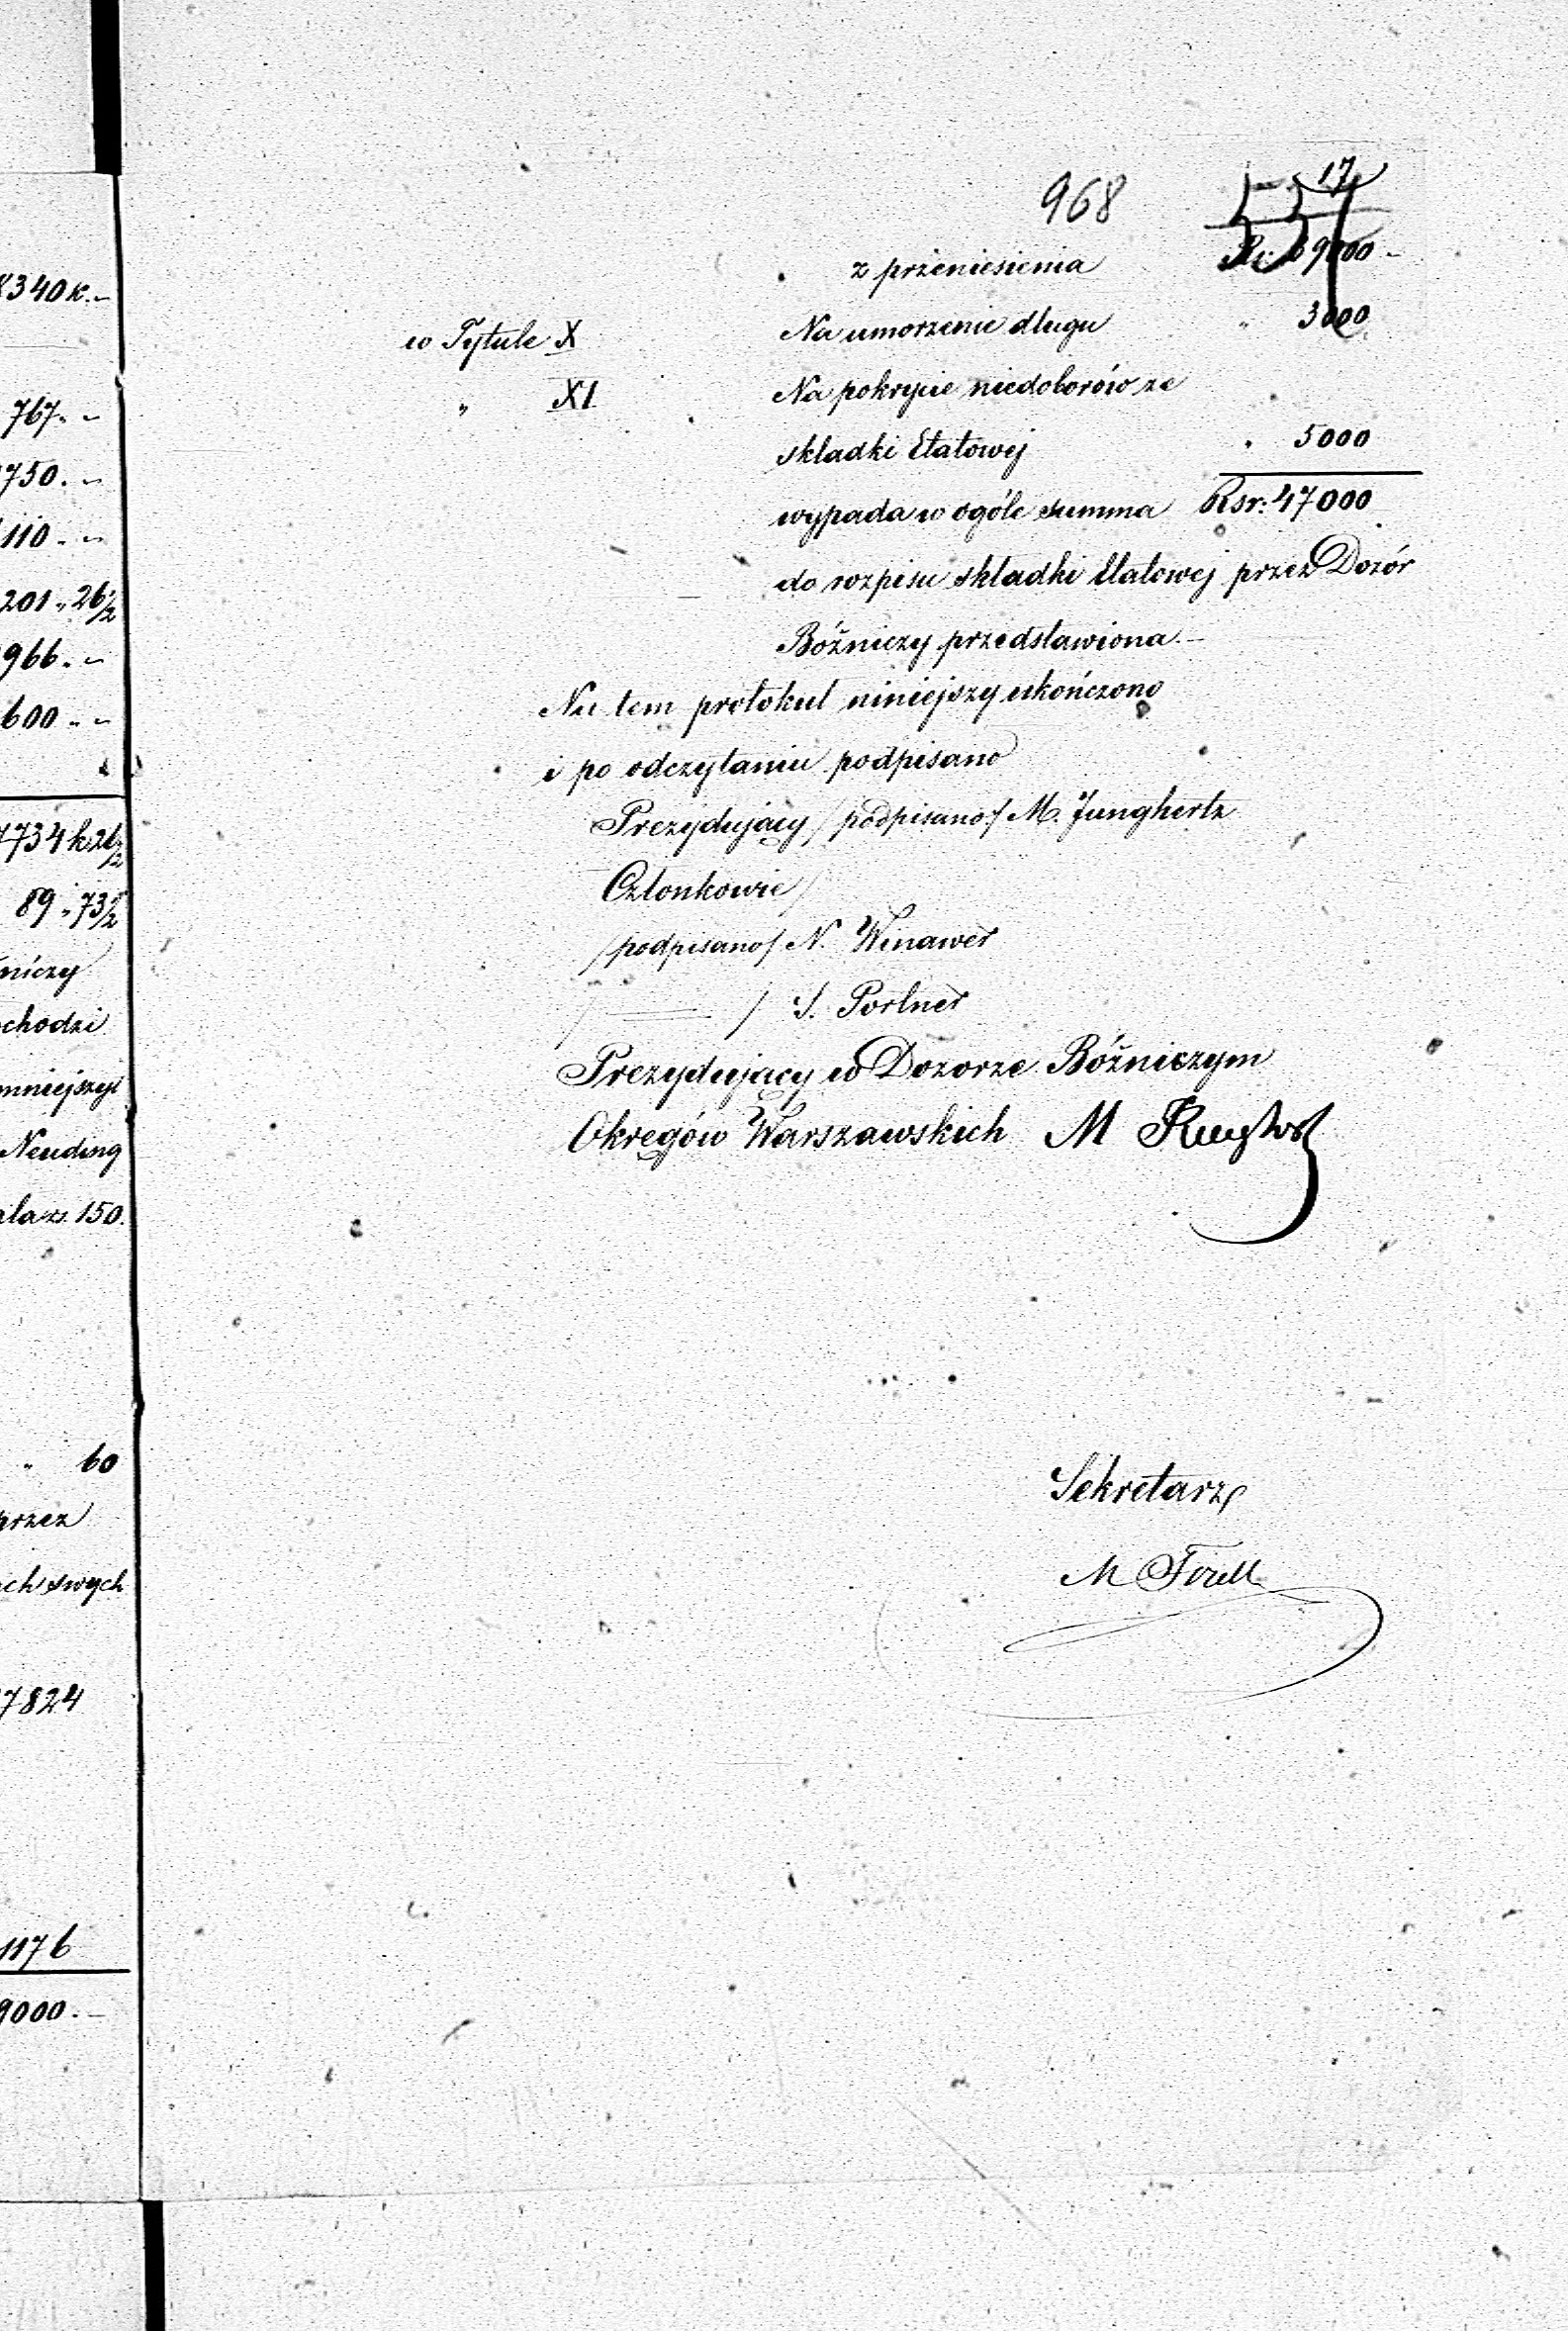 8340 k.-
767.-
750.-
110.-
201.26 1/2
966.-
600.-
7734 k 26 1/2
89.73 1/2
niczy
chodzi
mniejszyć
Neuding
150.
" 60
przez
ch swych
7824
1176
9000.-
968 17
z przeniesienia 39000-
w Tytule X Na umorzenie długu " 3000
" XI Na pokrycie niedoborów ze
składki Etatowej " 5000
wypada w ogóle summa Rsr: 47000
do rozpisu składki Etatowej przez Dozór
Bóźniczy przedstawiona.-
Na tem protokuł niniejszy ukończono
i po odczytaniu podpisano
Prezydujący /podpisano/ M. Junghertz
Członkowie/
/podpisano/ N. Winawer
/ —— / S. Portner
Prezydujący w Dozorze Bóźniczym
Okręgów Warszawskich M
Sekretarz
M